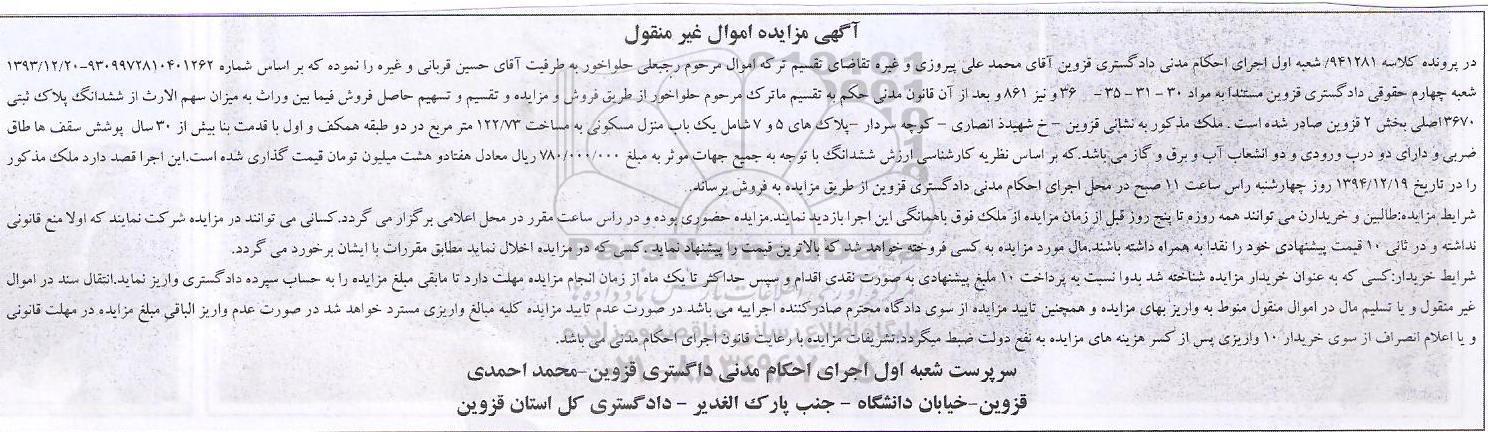 آگهی مزایده اموال غیر منقول
در پرونده کلاسه ۹۴۱۲۸۱/ شعبه اول اجرای احکام مدنی دادگستری قزوین آقای محمد علی پیروزی و غیره تقاضای تقسیم ترکه اموال مرحوم رجبعلی حلواخور به طرفیت آقای حسین قربانی و غیره را نموده که بر اساس شماره ۹۳۰۹۹۷۲۸۱۰۴۰۱۲۶۲-۱۳۹۳/۱۲/۲۰
شعبه چهارم حقوقی دادگستری قزوین مستندا به مواد ۳۰ - ۳۱ - ۳۵ - ۳۶ و نیز ۸۶۱ و بعد از آن قانون مدنی حکم به تقسیم ماترک مرحوم حلواخور از طریق فروش و مزایده و تقسیم و تسهیم حاصل فروش فیما بین وراث به میزان سهم الارث از ششدانگ پلاک ثبتی
۳۶۷۰اصلی بخش ۲ قزوین صادر شده است . ملک مذکور به نشانی قزوین - خ شهیدذ انصاری - کوچه سردار -پلاک های ۵ و ۷ شامل یک باب منزل مسکونی به مساحت ۱۲۲/۷۳ متر مربع در دو طبقه همکف و اول با قدمت بنا بیش از ۳۰ سال پوشش سقف ها طاق
ضربی و دارای دو درب ورودی و دو انشعاب آب و برق و گاز می باشد.که بر اساس نظریه کارشناسی ارزش ششدانگ با توجه به جمیع جهات موثر به مبلغ ۷۸۰/۰۰۰/۰۰۰ ریال معادل هفتادو هشت میلیون تومان قیمت گذاری شده است.این اجرا قصد دارد ملک مذکور
را در تاریخ ۱۳۹۴/۱۲/۱۹ روز چهارشنبه راس ساعت ۱۱ صبح در محل اجرای احکام مدنی دادگستری قزوین از طریق مزایده به فروش برساند.
شرایط مزایده:طالبین و خریدارن می توانند همه روزه تا پنج روز قبل از زمان مزایده از ملک فوق باهمانگی این اجرا بازدید نمایند.مزایده حضوری بوده و در راس ساعت مقرر در محل اعلامی برگزار می گردد.کسانی می توانند در مزایده شرکت نمایند که اولا منع قانونی
نداشته و در ثانی ۱۰ قیمت پیشنهادی خود را نقدا به همراه داشته باشند.مال مورد مزایده به کسی فروخته خواهد شد که بالاترین قیمت را پیشنهاد نماید.کسی که در مزایده اخلال نماید مطابق مقررات با ایشان برخورد می گردد.
شرایط خریدار:کسی که به عنوان خریدار مزایده شناخته شد بدوا نسبت به پرداخت ۱۰ ملیغ پیشنهادی به صورت نقدی اقدام و سپس حداکثر تا یک ماه از زمان انجام مزایده مهلت دارد تا مابقی مبلغ مزایده را به حساب سپرده دادگستری واریز نماید.انتقال سند در اموال
غیر منقول و یا تسلیم مال در اموال منقول منوط به واریز بهای مزایده و همچنین تایید مزایده از سوی دادگاه محترم صادر کننده اجراییه می باشد در صورت عدم تایید مزایده کلیه مبالغ واریزی مسترد خواهد شد در صورت عدم واریز الباقی مبلغ مزایده در مهلت قانونی
و یا اعلام انصراف از سوی خریدار ۱۰ واریزی پس از کسر هزینه های مزایده به نفع دولت ضبط میگردد.تشریفات مزایده با رعایت قانون اجرای احکام مدنی می باشد.
سرپرست شعبه اول اجرای احکام مدنی داگستری قزوین-محمد احمدی
قزوین-خیابان دانشگاه - جنب پارک الغدیر - دادگستری کل استان قزوین
ParsNamadData
پایگاه اطلاع رسانی مناقصه و مزایده